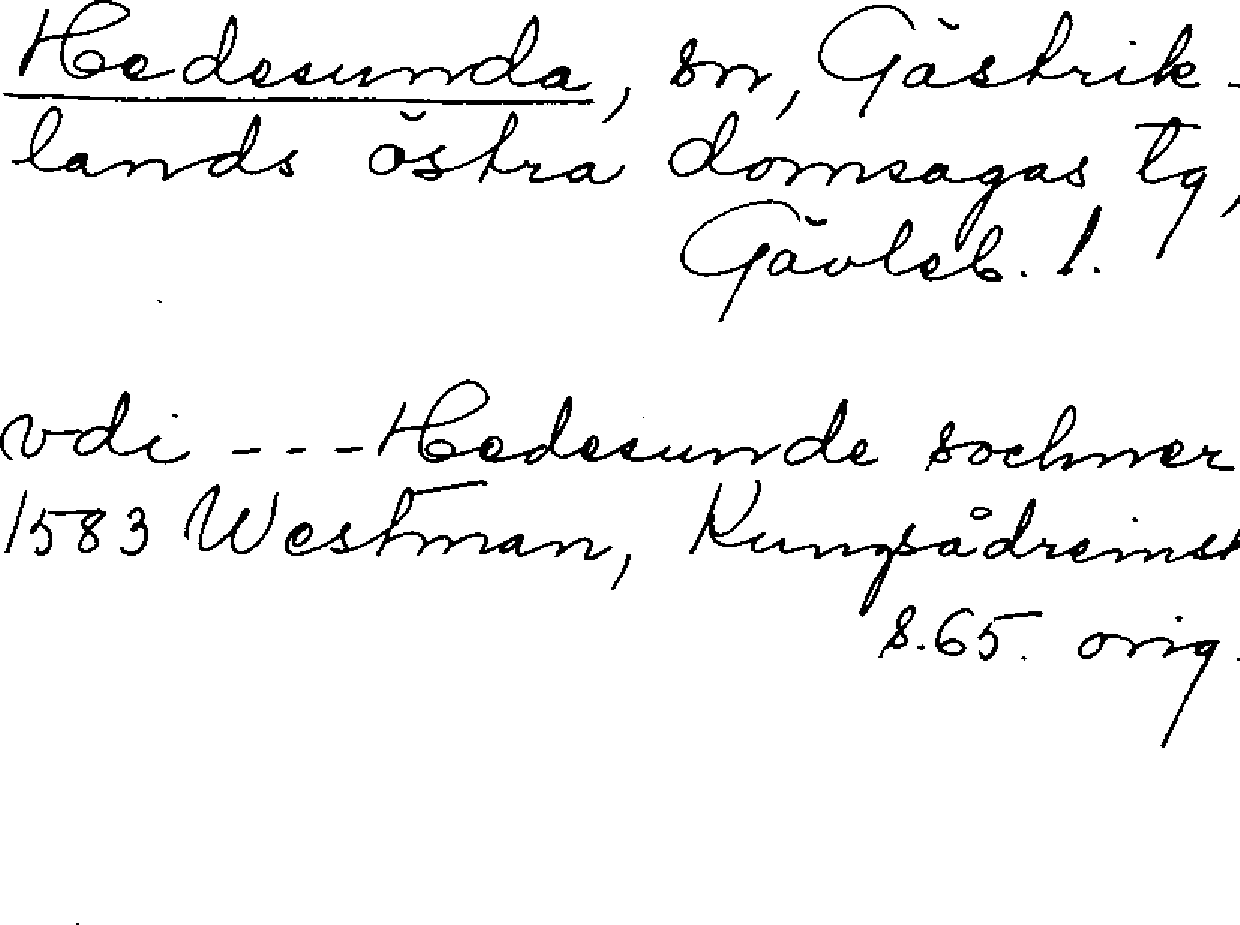 Hedesunda, sn, Gästrik-
lands östra domsagas tg,
Gävleb. l.
vdi --- Hedesunde sochner
1583 Westman, Kungsådreinst
s. 65. orig.